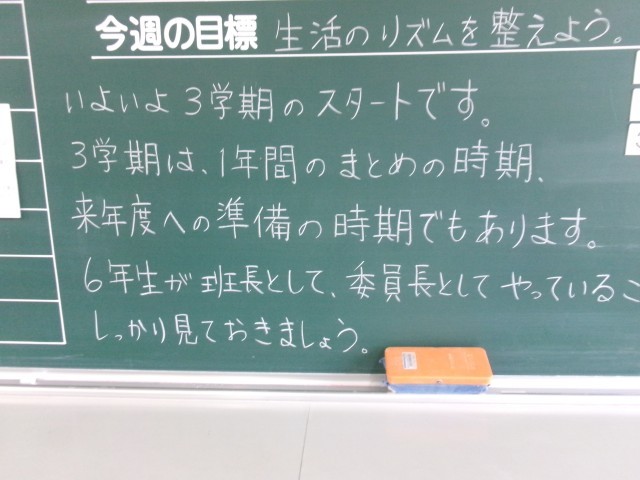 今週の目標 生活のリズムを整えよう。
いよいよ3学期のスタートです。
3学期は、1年間のまとめの時期、
来年度への準備の時期でもあります。
6年生が班長として、委員長としてやっているこ
しっかり見ておきましょう。